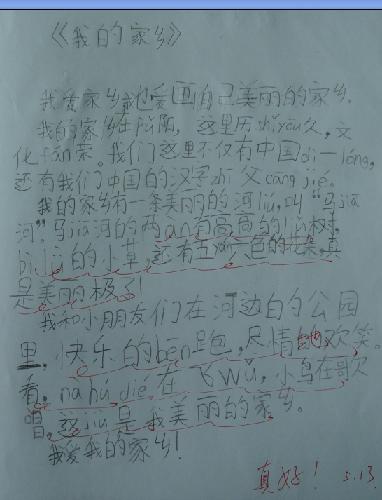 《我的家乡》
我爱家乡我也爱画自己美丽的家乡。
我的家乡在 这里历shǐ yōu久，文
化fán荣。我们这里不仅有中国dì一lóng，
还有我们中国的汉字zhī父cāng jié。
我的家乡有一条美丽的河liú，叫“马jiā
河”。马jiā河的两àn有高高的liǔ树，
bì lǜ的小草，还有五yán六色的花朵，真
是美丽极了！
我和小朋友们在河边的公园
里，快乐的bēn跑，尽情地欢笑。
看，nà hú dié在飞wǔ，小鸟在歌
唱，zhè jiù是我美丽的家乡。
我爱我的家乡！
真好！ 5.13